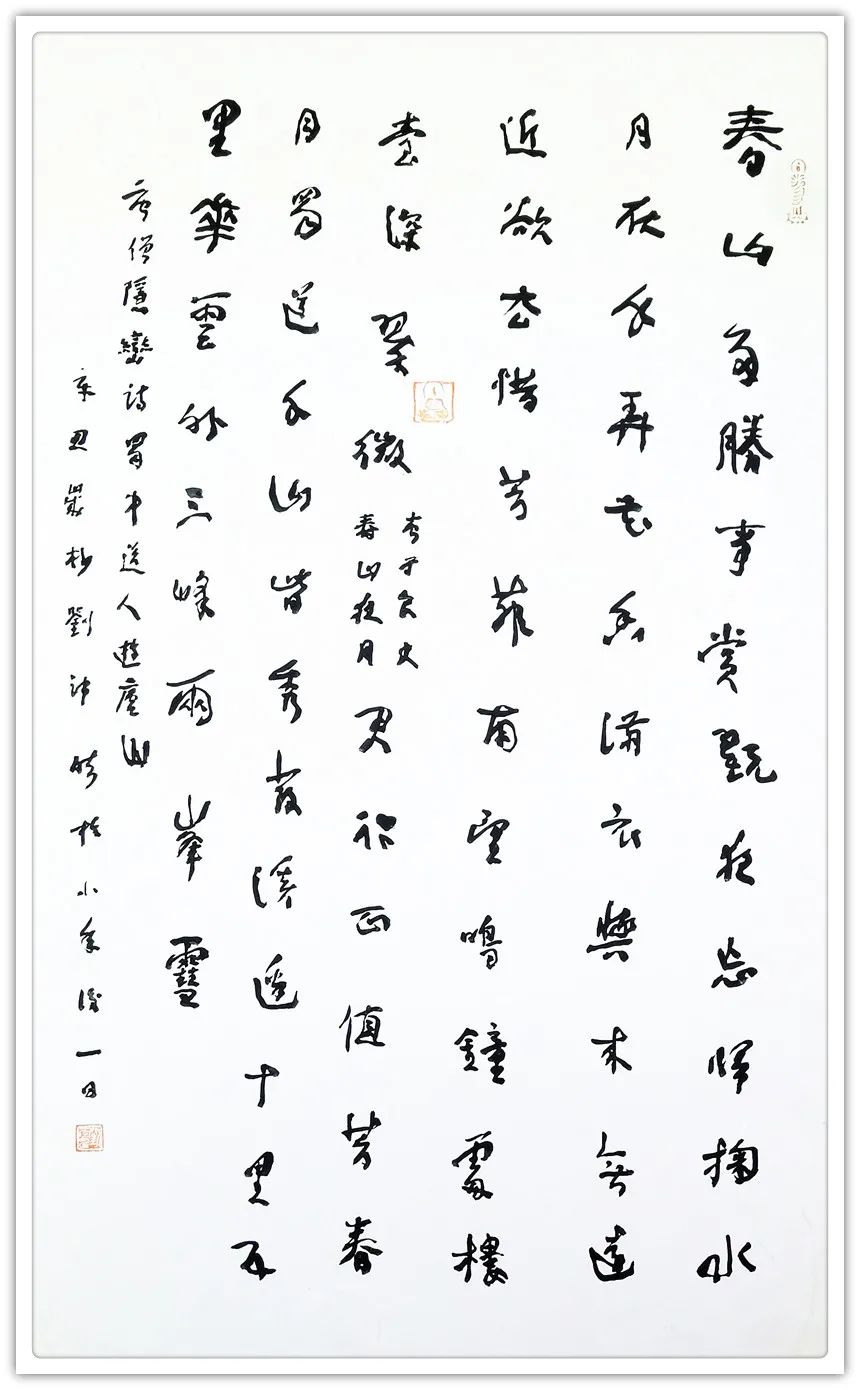 春山多勝事賞翫夜忘歸掬水
月在手弄花香滿衣興來無遠
近欲去惜芳菲南望鳴鐘處樓
臺深翠微
于良史
春山夜月
君游正值芳春
月蜀道千山皆秀發溪邊十里五
里華雲外三峰兩峰雪
唐僧隱巒詩蜀中送人遊廬山
辛丑歲杪劉時於小後一日